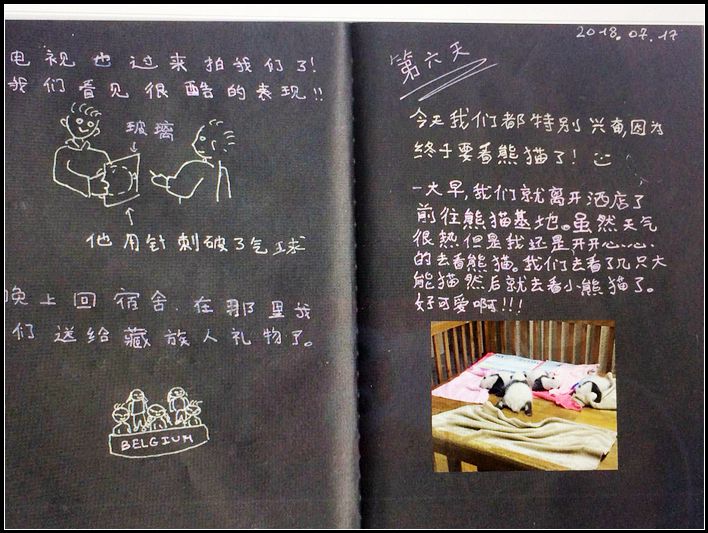 电视也过来拍我们了!
我们看见很酷的表现!!
玻璃
他用针刺破了气球
晚上回宿舍.在那里我
们送给藏族人礼物了。
BELGIUM
2018.07.17
第六天
今天我们都特别兴奋,因为
终于要看熊猫了!
一大早,我们就离开酒店了
前往熊猫基地。虽然天气
很热但是我还是开开心心
的去看熊猫。我们去看了几只大
能猫然后就去看小熊猫了。
好可爱啊!!!